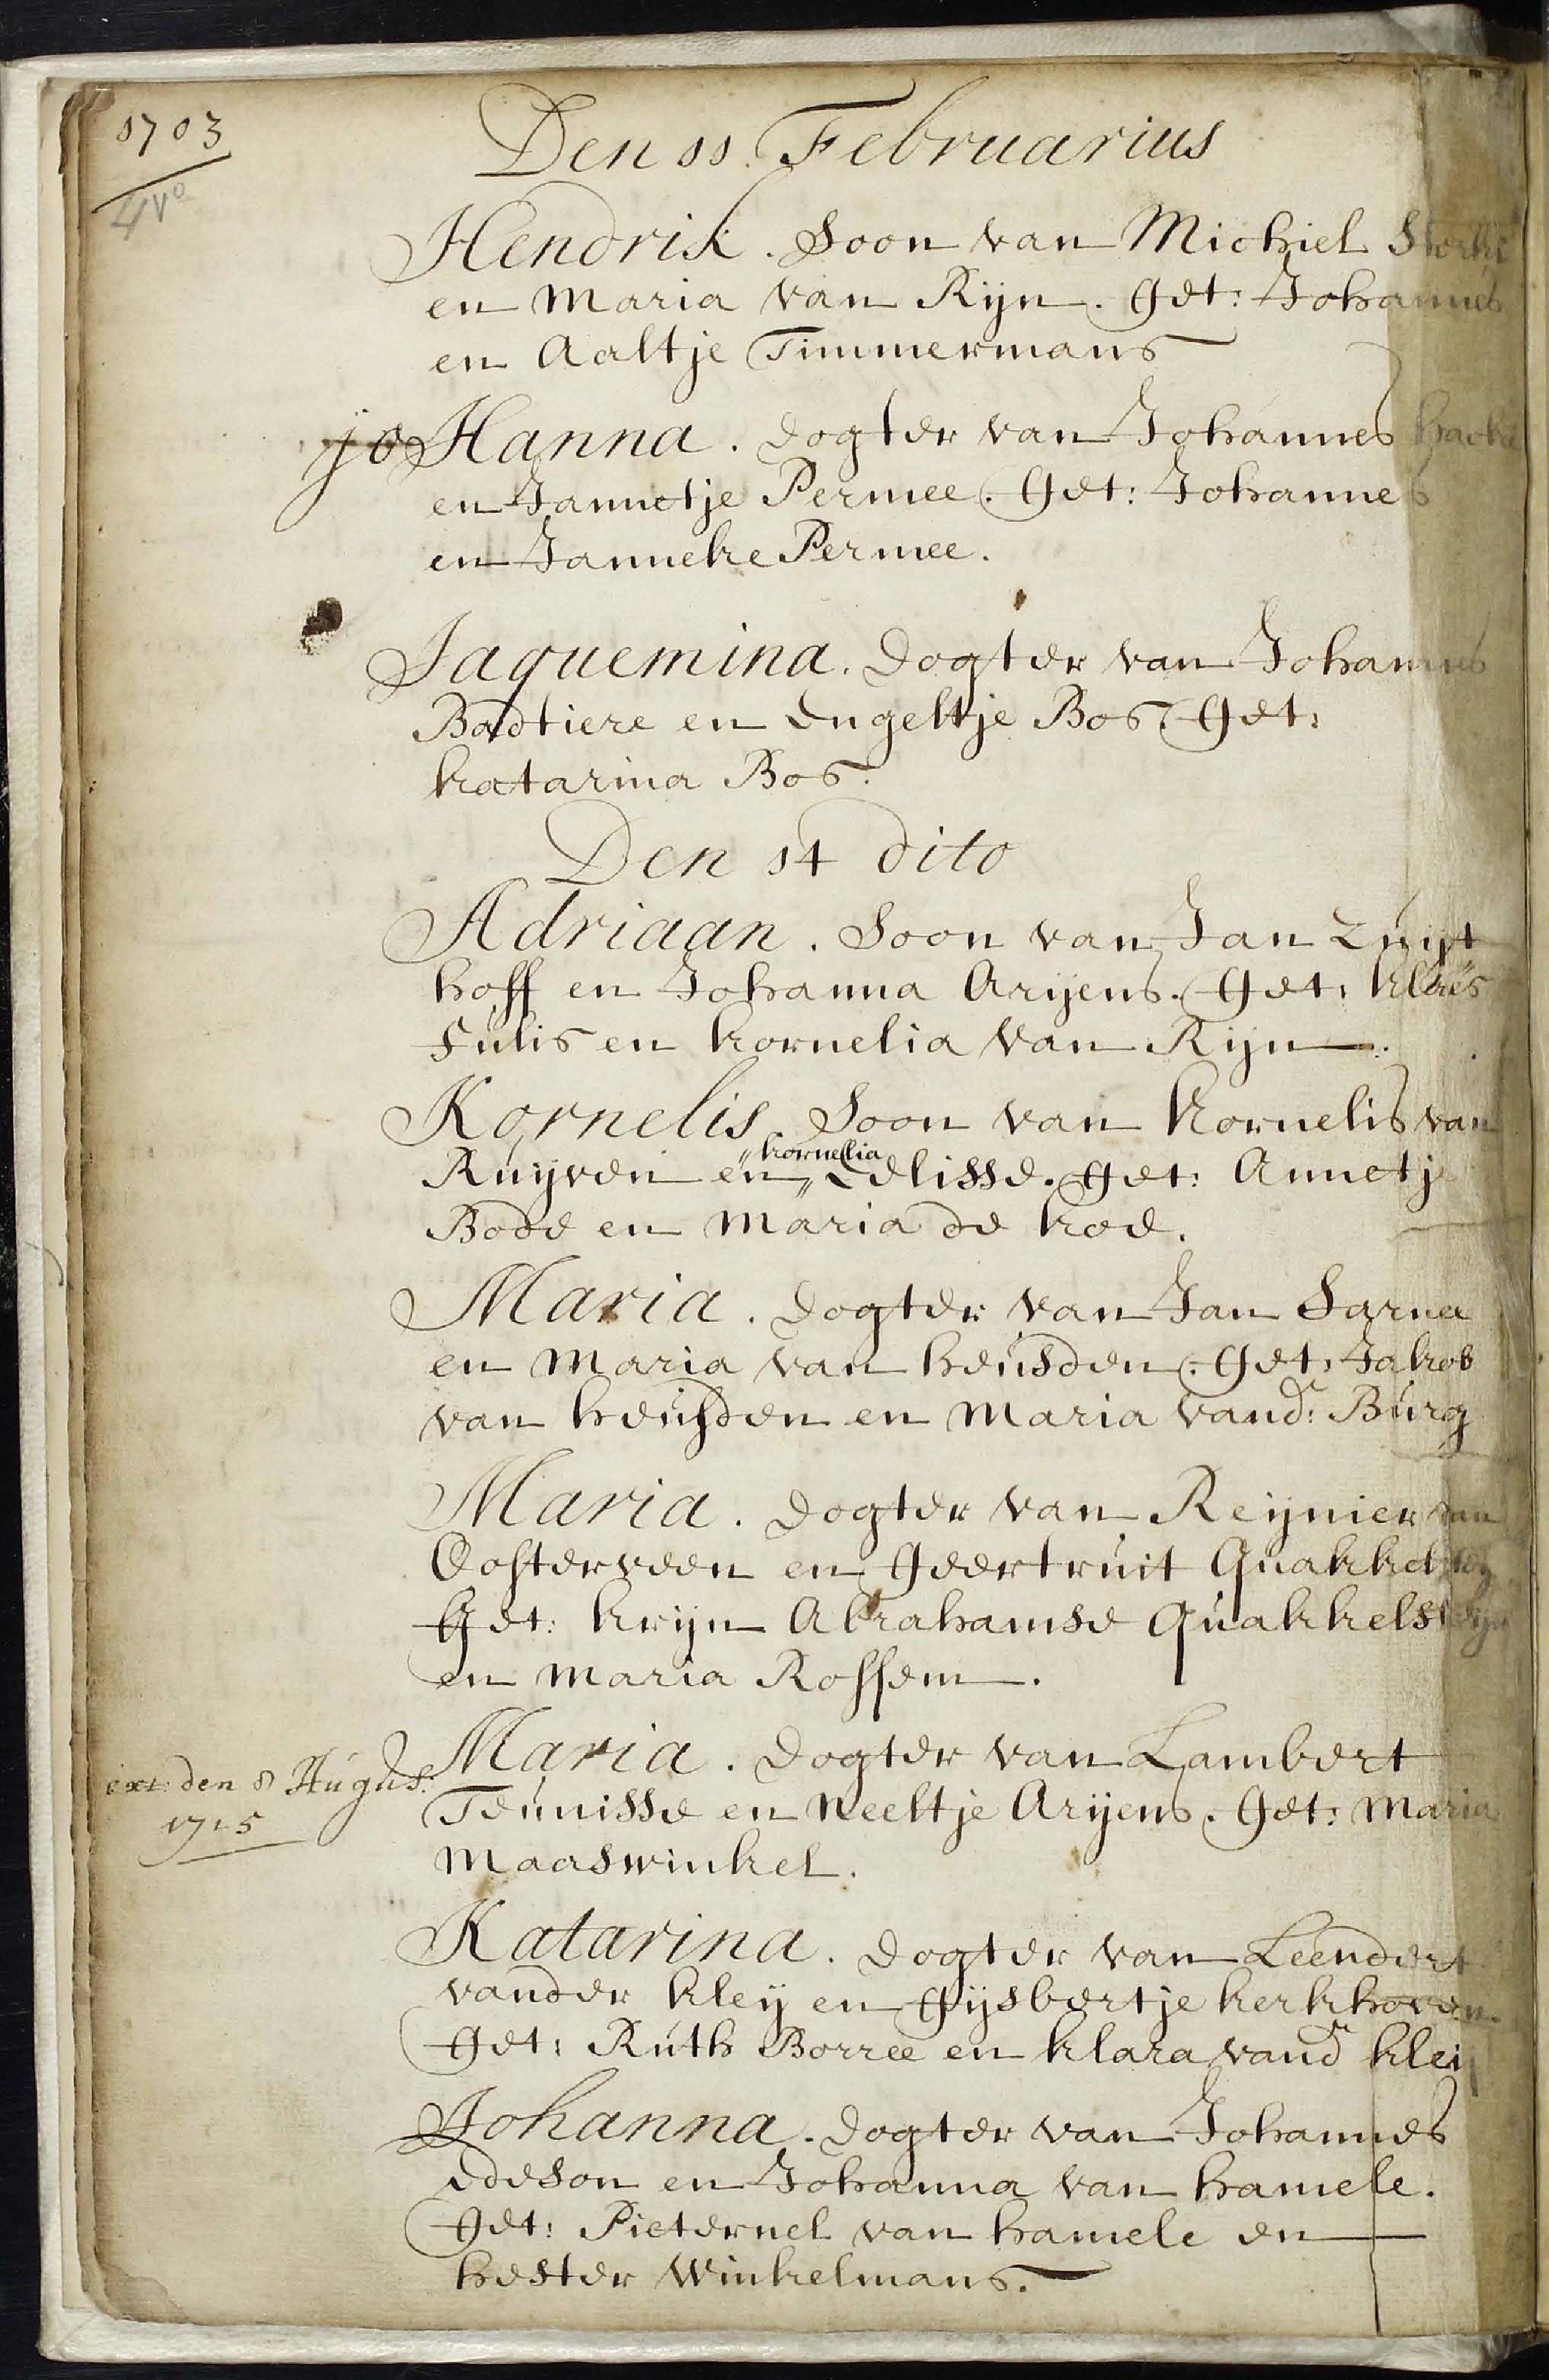 1703
4v°
Den 11. Februarius
Hendrik. Soon van Michiel
en Maria van Rijn. get: Johannes
en Aaltje Timmermans
joHanna. Dogter van Johannes
en Jannetje Permee. Get: Johannes
en Janneke Permee.
Jaquemina. Dogter van Johannes
Badtiere en Engeltje Bos. Get:
Katarina Bos.
Den 14 dito
Adriaan. Soon van Jan Zuijt
hoff en Johanna Arijens. Get: Klaes
Fulis en Kornelia van Rijn.
Kornelis. Soon van Kornelis van
Ruijven en „Kornelia„ Zelisse. get: Annetje
Bode en Maria de Koe.
Maria. Dogter van Jan Sarnee
en Maria van heusden. get: Jakob
van heusden en Maria vandr: Burg
Maria. Dogter van Reijnier van
Oosterveen en Geertruit
Get: Krijn Abrahamse Quakkelsteijn
en Maria Rossem.
ext: den 8 Augus: 1715
Maria. Dogter van Lambert
Teunisse en Neeltje Arijens. get: Maria
Maaswinkel.
Katarina. Dogter van Leendert
vander Kleij en Gijsbertje Kerkhoven.
Get: Ruth Borree en Klara vandr Kleij
Johanna. Dogter van Johannes
Edeson en Johanna van hamele.
Get: Pieternel van hamele en
hester Winkelmans.